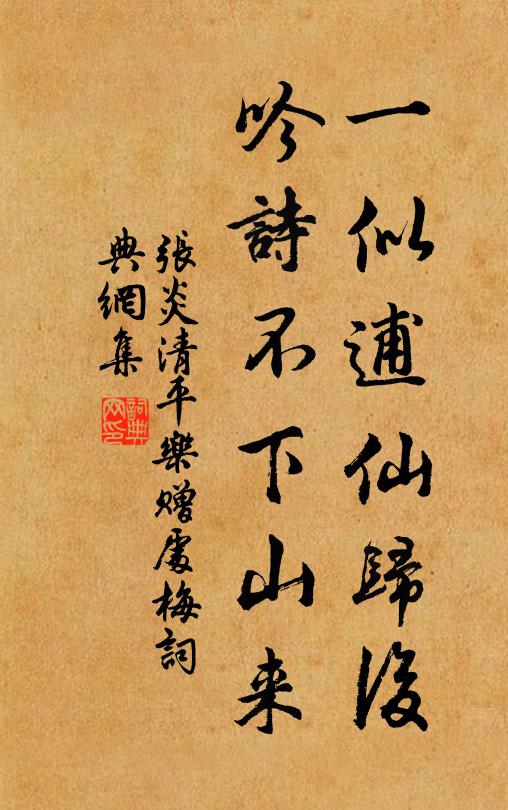 一似逋仙歸後
吟詩不下山来
張炎清平樂贈處梅詞
典網集
詞典網印